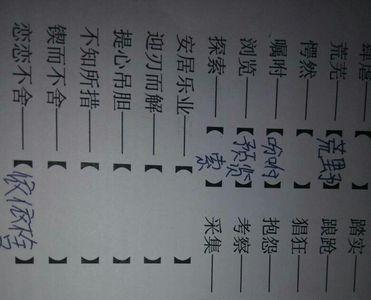 肆虐——【 】 踏实——
荒芜——【荒野】 踉跄——
愕然——【 】 猖狂——
嘱咐——【吩咐】 抱怨——
浏览——【预览】 考察——
探索——【索】 采集——
安居乐业——【 】
迎刃而解——【 】
提心吊胆——【 】
不知所措——【 】
锲而不舍——【 】
恋恋不舍——【依依不舍】